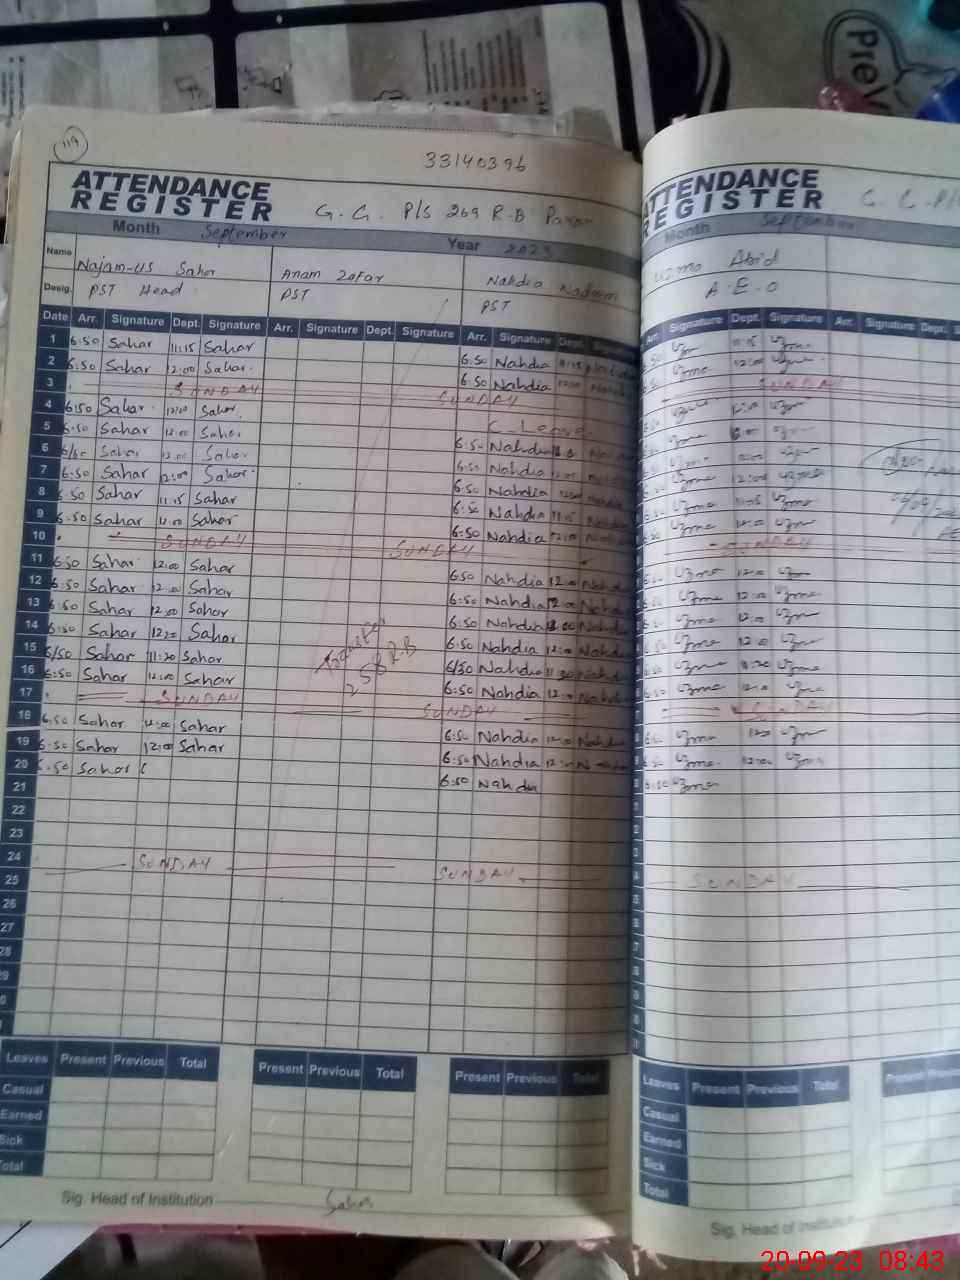 PreV
119
33140396
ATTENDANCE
REGISTER
G. G. P/S 269 R-B
Month September Year 2023
Name Najam-us Sahar Anam Zafar Nahdia Nadeem
Desig. PST Head PST PST
Date Arr. Signature Dept. Signature Arr. Signature Dept. Signature Arr. Signature Dept. Signature
1 6:50 Sahar 11:15 Sahar 6:50 Nahdia 11:15
2 6:50 Sahar 12:00 Sahar 6:50 Nahdia 12:00
3 SUNDAY SUNDAY
4 6:50 Sahar 12:00 Sahar C. Leave
5 6:50 Sahar 12:00 Sahar 6:50 Nahdia
6 6/50 Sahar 12:00 Sahar 6:50 Nahdia 12:00
7 6:50 Sahar 12:00 Sahar 6:50 Nahdia 12:00
8 6:50 Sahar 11:15 Sahar 6:50 Nahdia 11:15
9 6:50 Sahar 12:00 Sahar 6:50 Nahdia 12:00
10 SUNDAY SUNDAY
11 6:50 Sahar 12:00 Sahar 6:50 Nahdia 12:00 Nahdia
12 6:50 Sahar 12:00 Sahar 6:50 Nahdia 12:00 Nahdia
13 6:50 Sahar 12:00 Sahar 6:50 Nahdia 12:00 Nahdia
14 6:50 Sahar 12:00 Sahar 6:50 Nahdia 12:00 Nahdia
15 6/50 Sahar 11:20 Sahar 6/50 Nahdia 11:20 Nahdia
16 6:50 Sahar 12:00 Sahar 6:50 Nahdia 12:00 Nahdia
Transfer
258 R.B
17 SUNDAY SUNDAY
18 6:50 Sahar 12:00 Sahar 6:50 Nahdia 12:00 Nahdia
19 6:50 Sahar 12:00 Sahar 6:50 Nahdia 12:00
20 6:50 Sahar 6:50 Nahdia
21
22
23
24 SUNDAY SUNDAY
25
26
27
28
29
Leaves Present Previous Total Present Previous Total Present Previous Total
Casual
Earned
Sick
Total
Sig. Head of Institution Sahar
ATTENDANCE
REGISTER
G. G. P/S
Month September
Uzma Abid
A.E.O
Arr. Signature Dept. Signature Arr. Signature Dept.
6:50 Uzma 11:15 Uzma
6:50 Uzma 12:00 Uzma
SUNDAY
Uzma 12:00 Uzma
Uzma Uzma
Uzma 12:00 Uzma
Uzma 12:00 Uzma
Uzma 11:15 Uzma
Uzma 12:00 Uzma
SUNDAY
Uzma 12:00 Uzma
Uzma 12:00 Uzma
Uzma 12:00 Uzma
Uzma 12:00 Uzma
Uzma 11:20 Uzma
Uzma 12:00 Uzma
SUNDAY
Uzma 12:00 Uzma
Uzma 12:00 Uzma
6:50 Uzma
SUNDAY
Leaves Present Previous Total Present
Casual
Earned
Sick
Total
Sig. Head of Institution
20-09-23 08:43